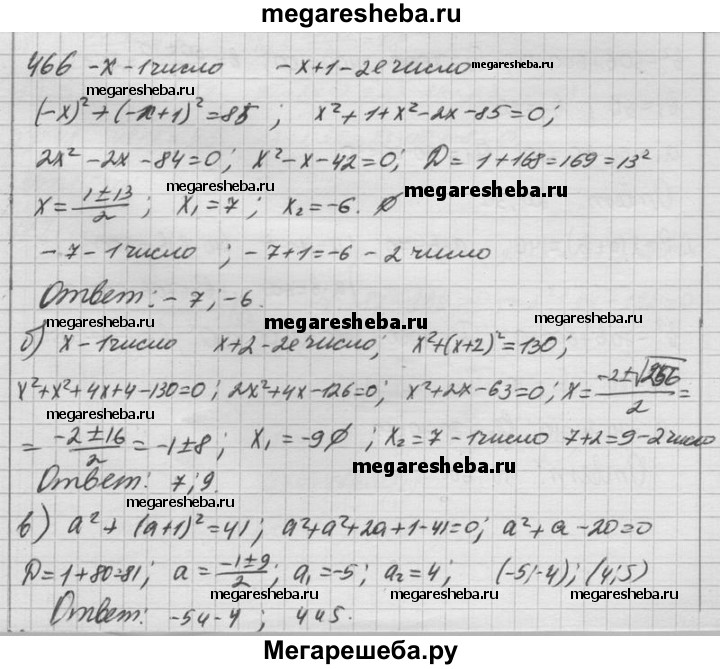 megaresheba.ru
466 -x - 1 число -x+1 - 2е число megaresheba.ru
(-x)² + (-x+1)² = 85 ; x² + 1 + x² - 2x - 85 = 0;
2x² - 2x - 84 = 0; x² - x - 42 = 0; D = 1 + 168 = 169 = 13²
megaresheba.ru megaresheba.ru
x = (1 ± 13)/2 ; x₁ = 7 ; x₂ = -6. ∅
megaresheba.ru
-7 - 1 число ; -7+1 = -6 - 2 число
Ответ: -7; -6.
megaresheba.ru megaresheba.ru
б) x - 1 число x+2 - 2е число; x² + (x+2)² = 130;
megaresheba.ru
x² + x² + 4x + 4 - 130 = 0; 2x² + 4x - 126 = 0; x² + 2x - 63 = 0; x = (-2 ± √256)/2 =
= (-2 ± 16)/2 = -1 ± 8; x₁ = -9 ∅ ; x₂ = 7 - 1 число 7+2 = 9 - 2 число
megaresheba.ru
Ответ: 7; 9.
megaresheba.ru megaresheba.ru
в) a² + (a+1)² = 41; a² + a² + 2a + 1 - 41 = 0; a² + a - 20 = 0
megaresheba.ru
D = 1 + 80 = 81; a = (-1 ± 9)/2; a₁ = -5; a₂ = 4; (-5; -4); (4; 5)
megaresheba.ru megaresheba.ru megaresheba.ru
Ответ: -5 и -4 ; 4 и 5.
Мегарешеба.ру